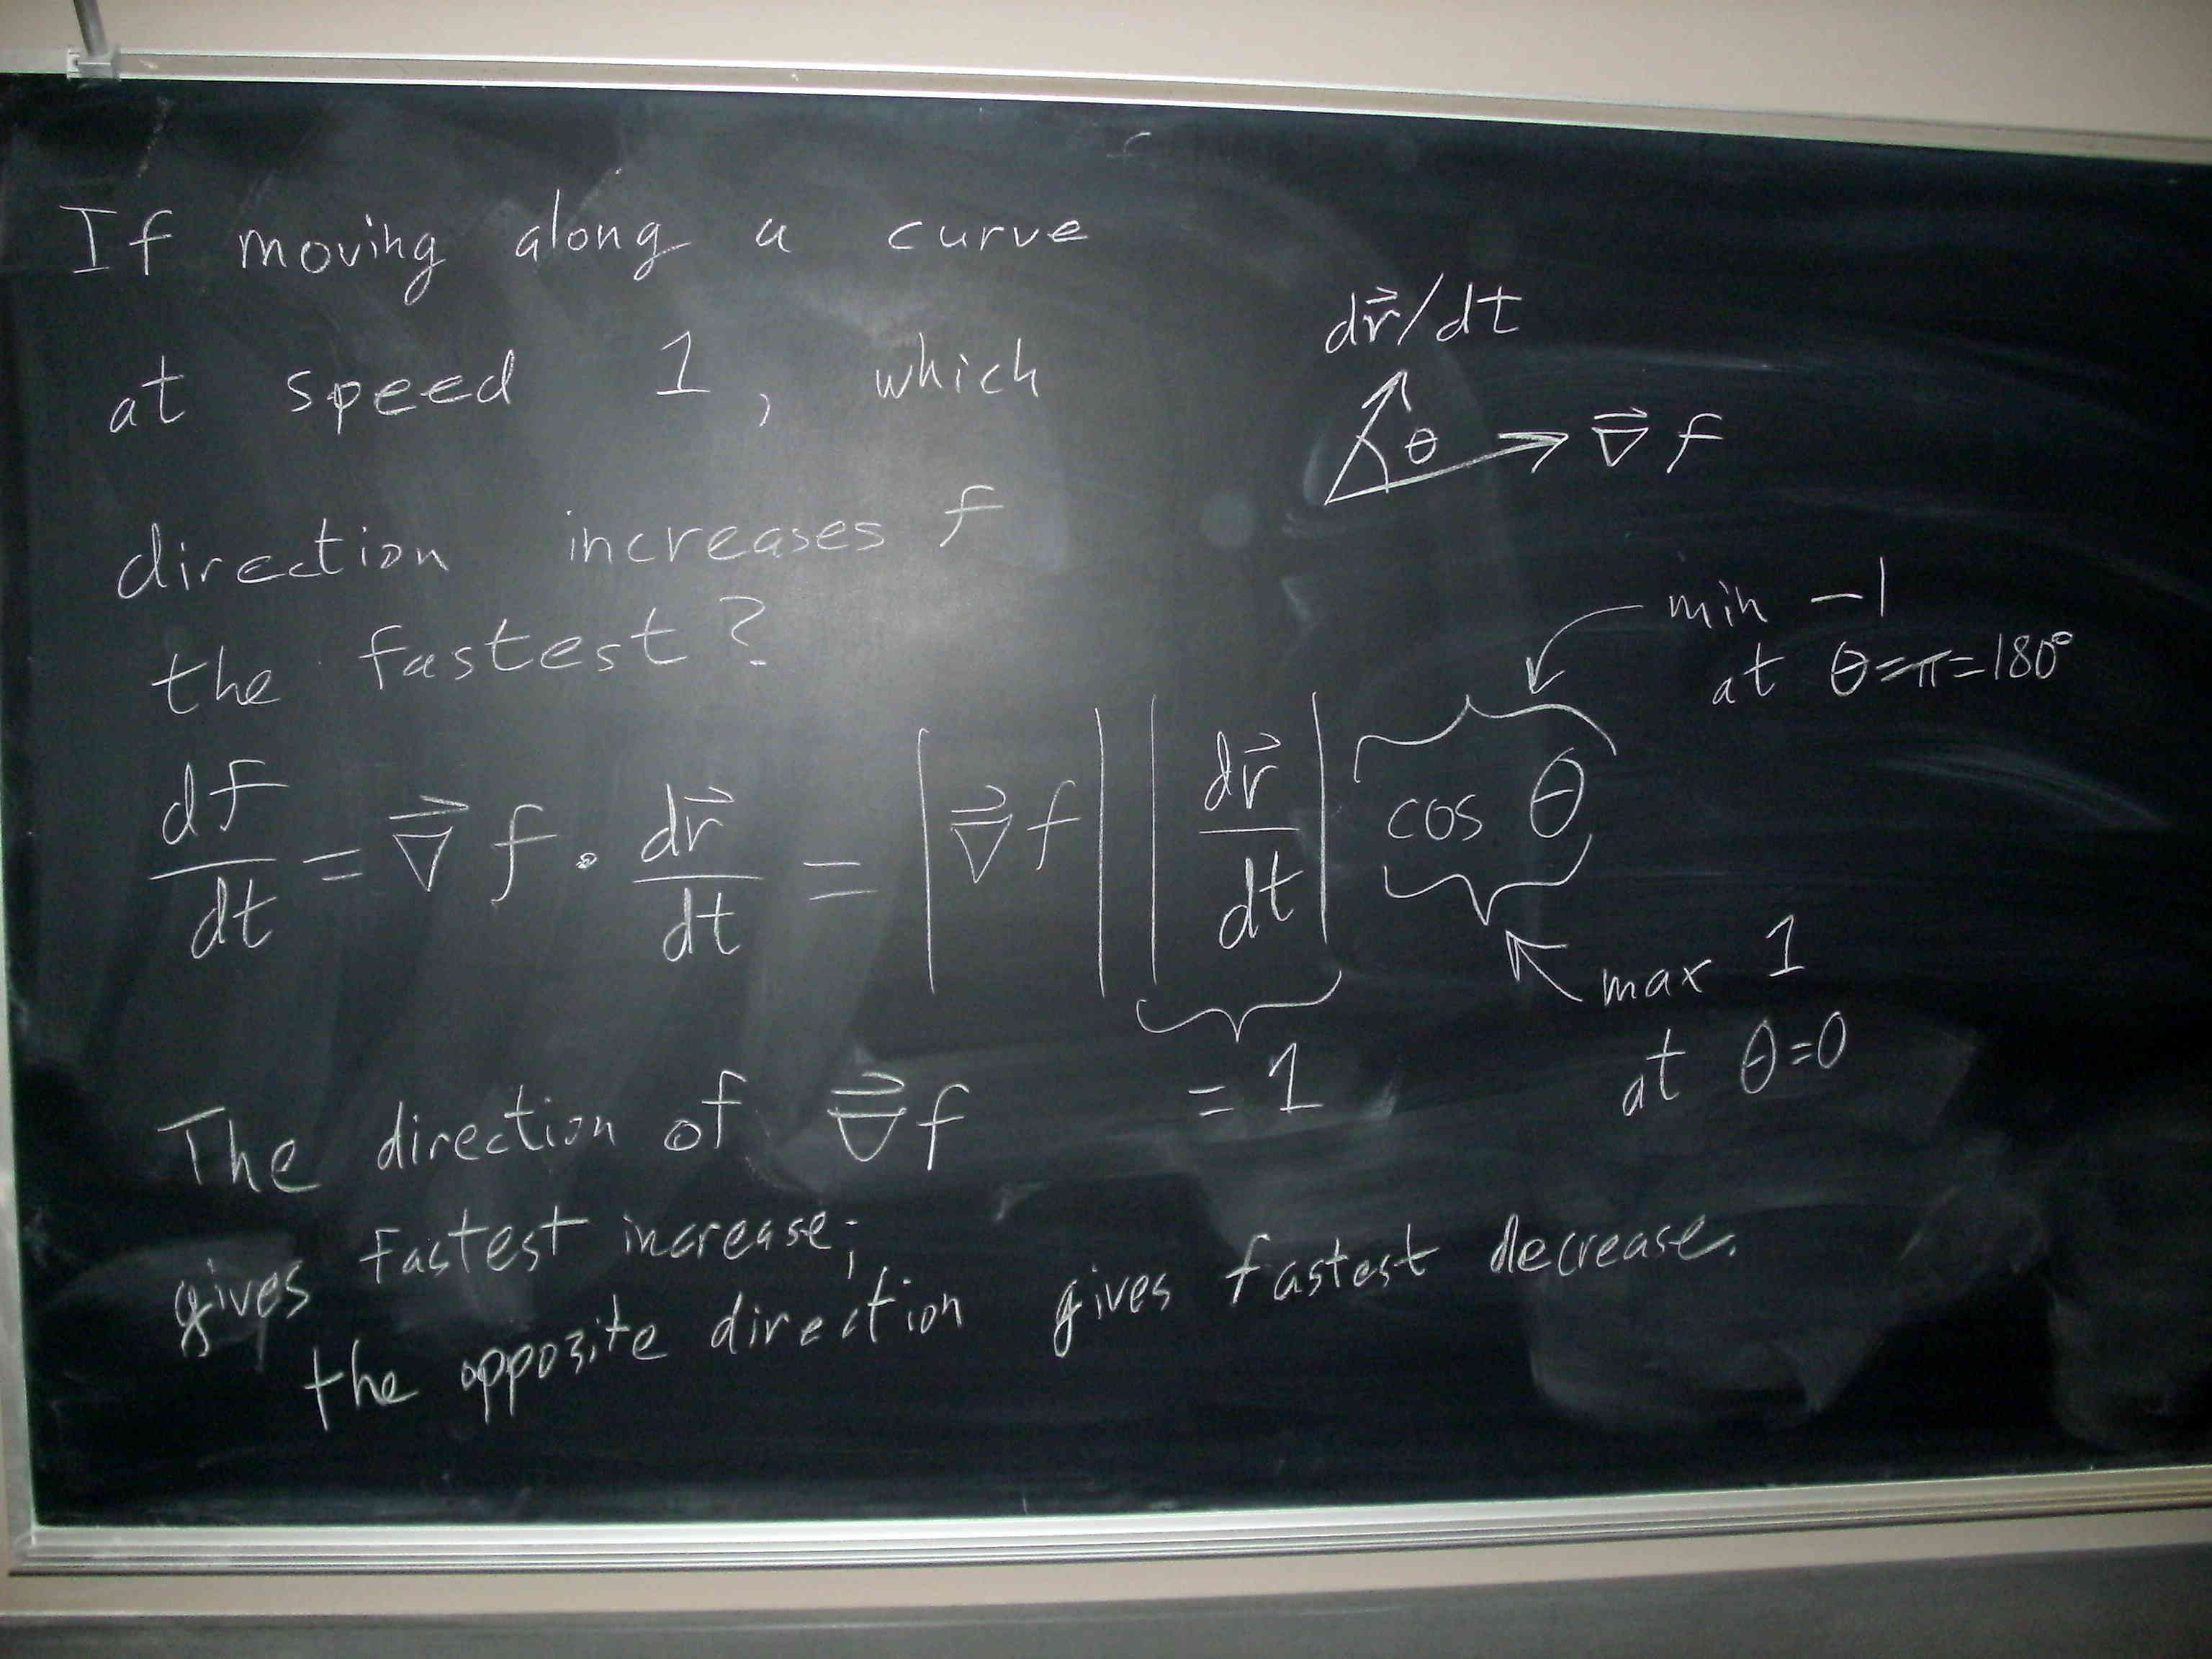 If moving along a curve
at speed 1, which
direction increases f
the fastest?
dr⃗/dt
θ
∇⃗ f
min -1
at θ=π=180°
df/dt = ∇⃗ f · dr⃗/dt = |∇⃗ f| |dr⃗/dt| cos θ
= 1
max 1
at θ=0
The direction of ∇⃗ f
gives fastest increase;
the opposite direction gives fastest decrease.